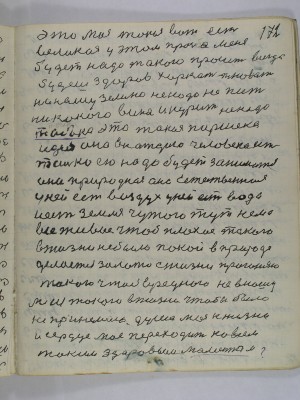 это моя такая вот ест 171
великая у этом прозба меня
будет надо такого просит всегда
будеш здоров харкат плюват
на наму землю ненадо не пит
никакого вина и курит ненадо
табака это такая
идея она внатдано человека ест
толко ею надо будет заниматся
она природная она естественная
у ней ест воздух у ней ест вода
и ест земля чутого тут нема
все живое чтобы плохое такого
вжизни небыло покой в природе
делается золото с жизни прогоняю
такого чтобы вредного не вносил
такого вжизни чтобы было
не принемаю душа моя книзны
и сердце мое переходит ковсем
таким здоровья малютка?